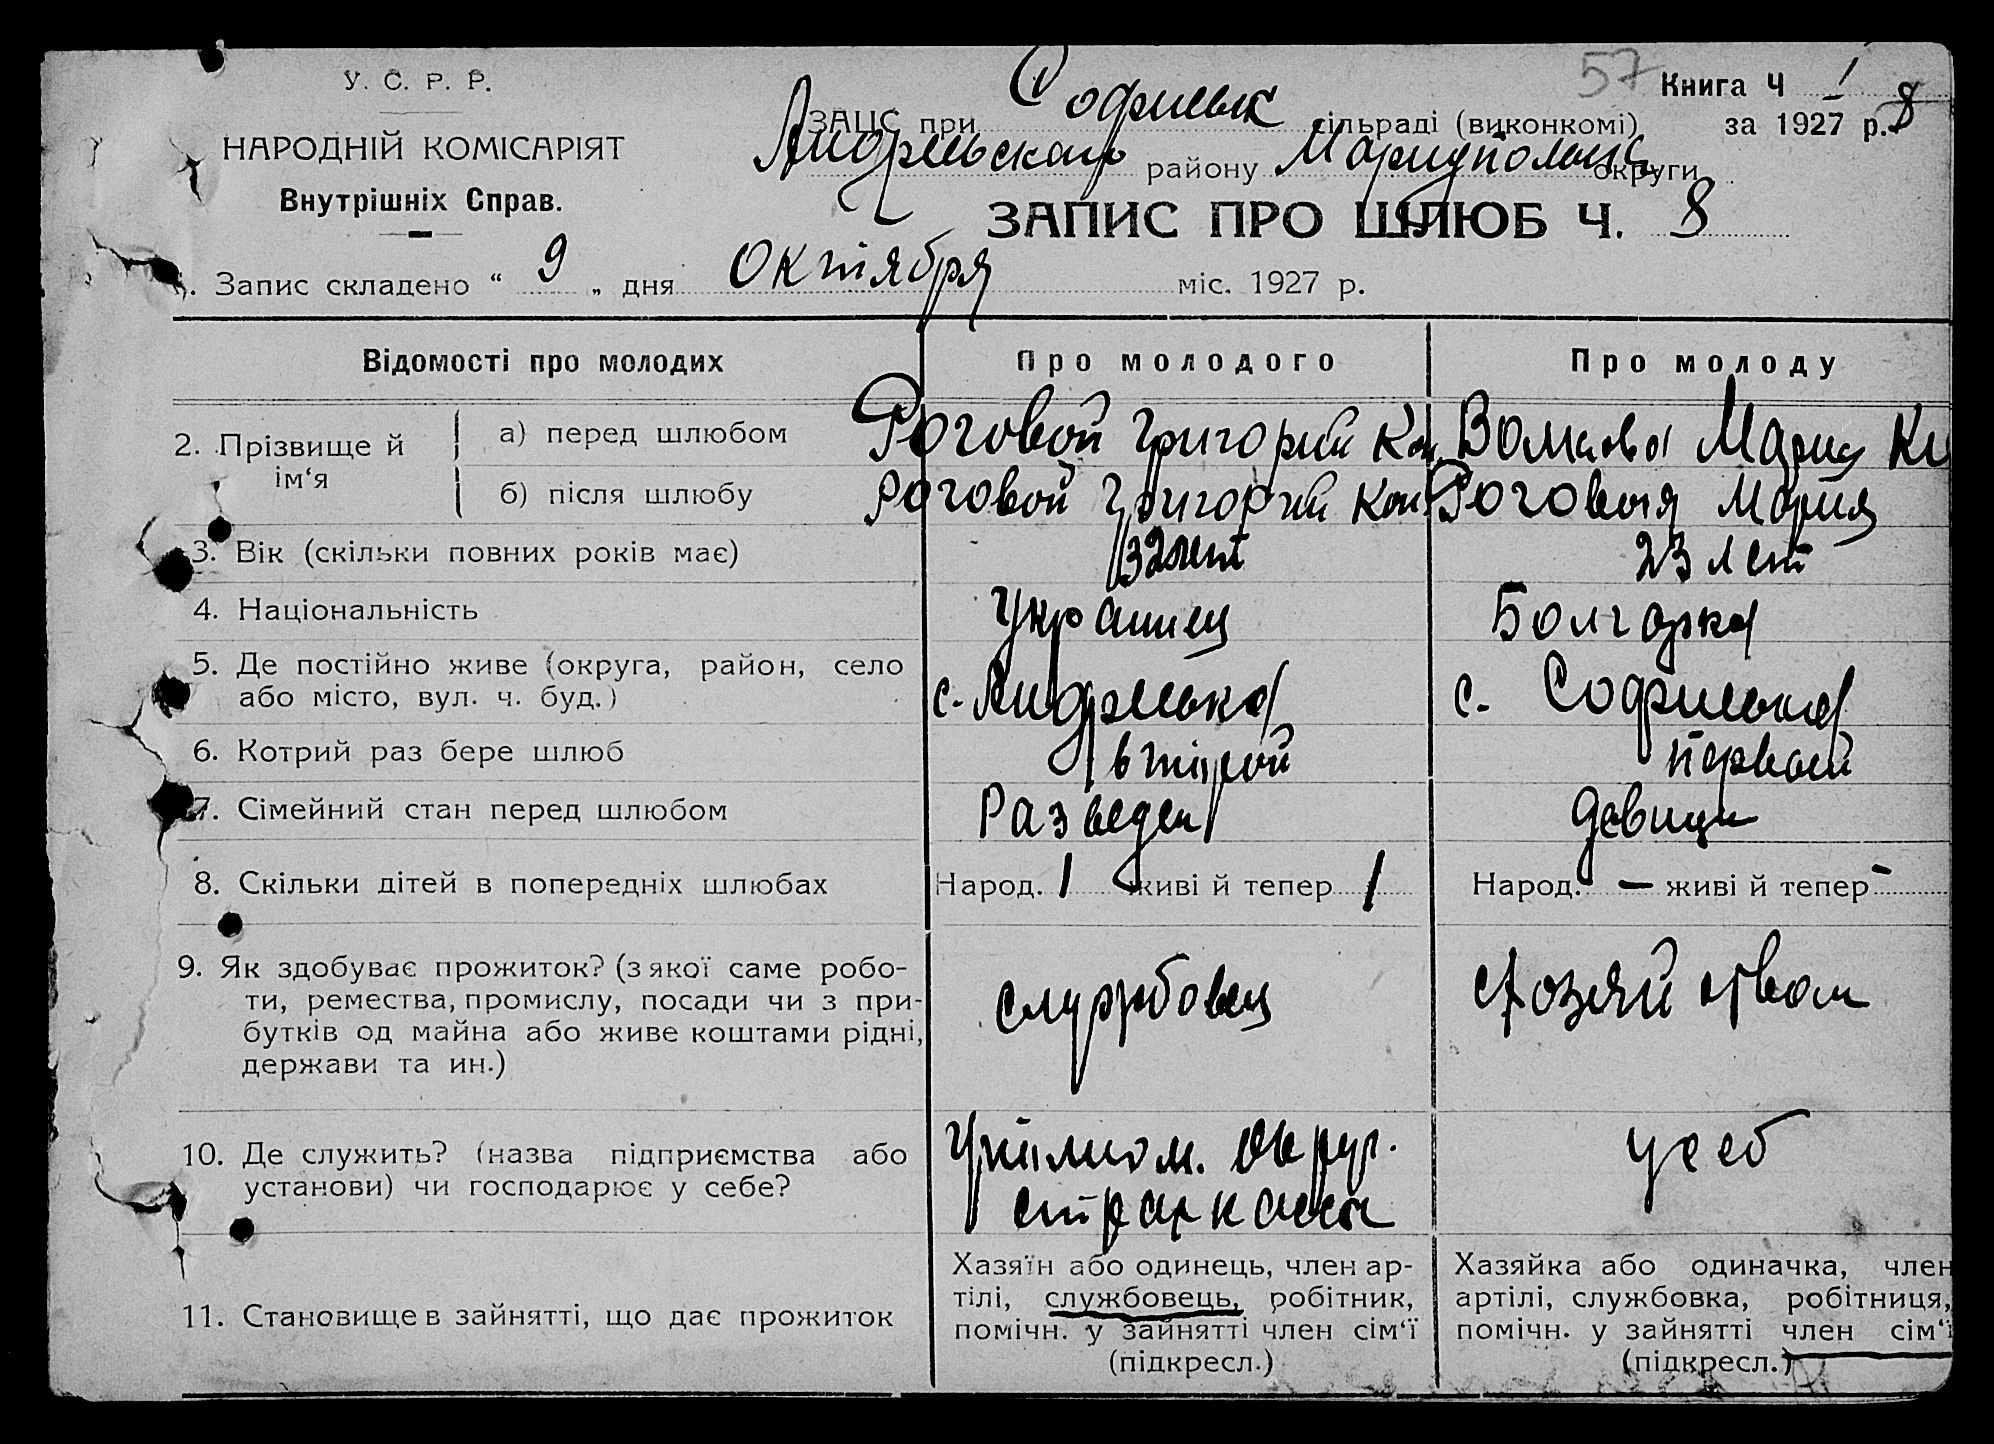 У. С. Р. Р.
НАРОДНІЙ КОМІСАРІЯТ
Внутрішніх Справ.
57 Книга Ч 1
ЗАЦС при Софиевск сільраді (виконкомі) за 1927 р. 8
Андреевского району Мариупольск округи
ЗАПИС ПРО ШЛЮБ Ч. 8
1. Запис складено “ 9 „ дня Октября міс. 1927 р.
Відомості про молодих Про молодого Про молоду
2. Прізвище й ім‘я
а) перед шлюбом Роговой Григорий Кон. Волкова Мария Ки
б) після шлюбу Роговой Григорий Кон. Роговая Мария
3. Вік (скільки повних років має) 32 лет 23 лет
4. Національність Украинец Болгарка
5. Де постійно живе (округа, район, село
або місто, вул. ч. буд.) с. Андреевка с. Софиевка
6. Котрий раз бере шлюб второй первый
7. Сімейний стан перед шлюбом Разведен девица
8. Скільки дітей в попередніх шлюбах Народ. 1 живі й тепер 1 Народ. — живі й тепер -
9. Як здобуває прожиток? (з якої саме робо-
ти, ремества, промислу, посади чи з при-
бутків од майна або живе коштами рідні,
держави та ин.)
службовец хозяйством
10. Де служить? (назва підприємства або
установи) чи господарює у себе?
округ. у себ
страхкассы
11. Становище в зайнятті, що дає прожиток
Хазяїн або одинець, член ар-
тілі, службовець, робітник,
помічн. у зайнятті член сім‘ї
(підкресл.)
Хазяйка або одиначка, член
артілі, службовка, робітниця,
помічн. у зайнятті член сім‘ї
(підкресл.)